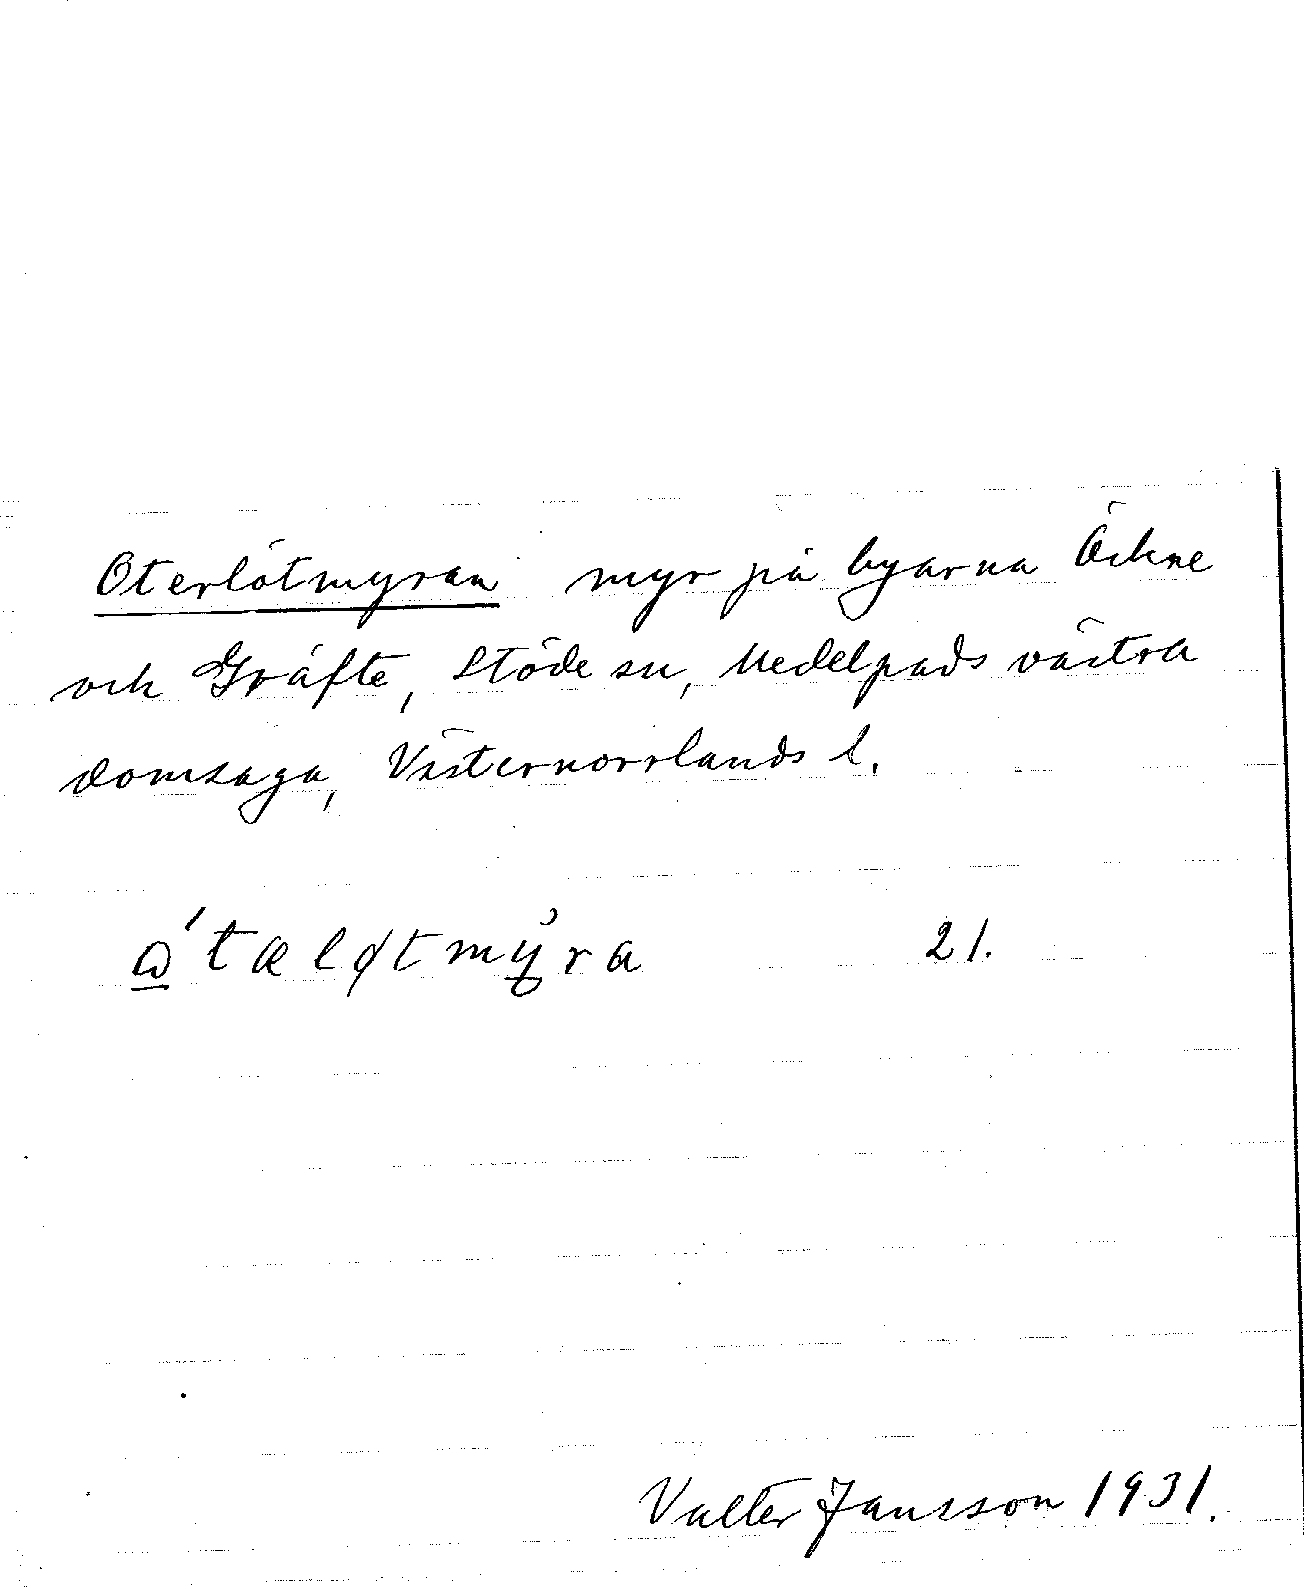 Oterlötmyran myr på byarna Öckne
och Gräfte, Stöde sn, Medelpads västra
domsaga, Västernorrlands l.
21.
Valter Jansson 1931.